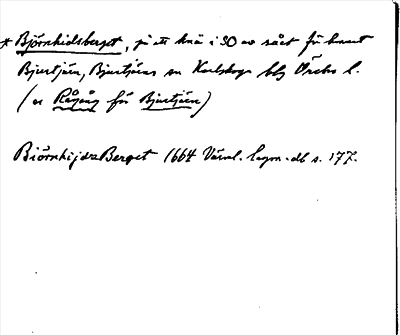 * Björnhidsberget, på ett knä i SO av rået för
Bjurtjärn, Bjurtjärns sn Karlskoga bg Örebro l.
(se Rågång för Bjurtjärn)
BiörnhijdzBerget 1664 Värml. lagm.-db s. 177.